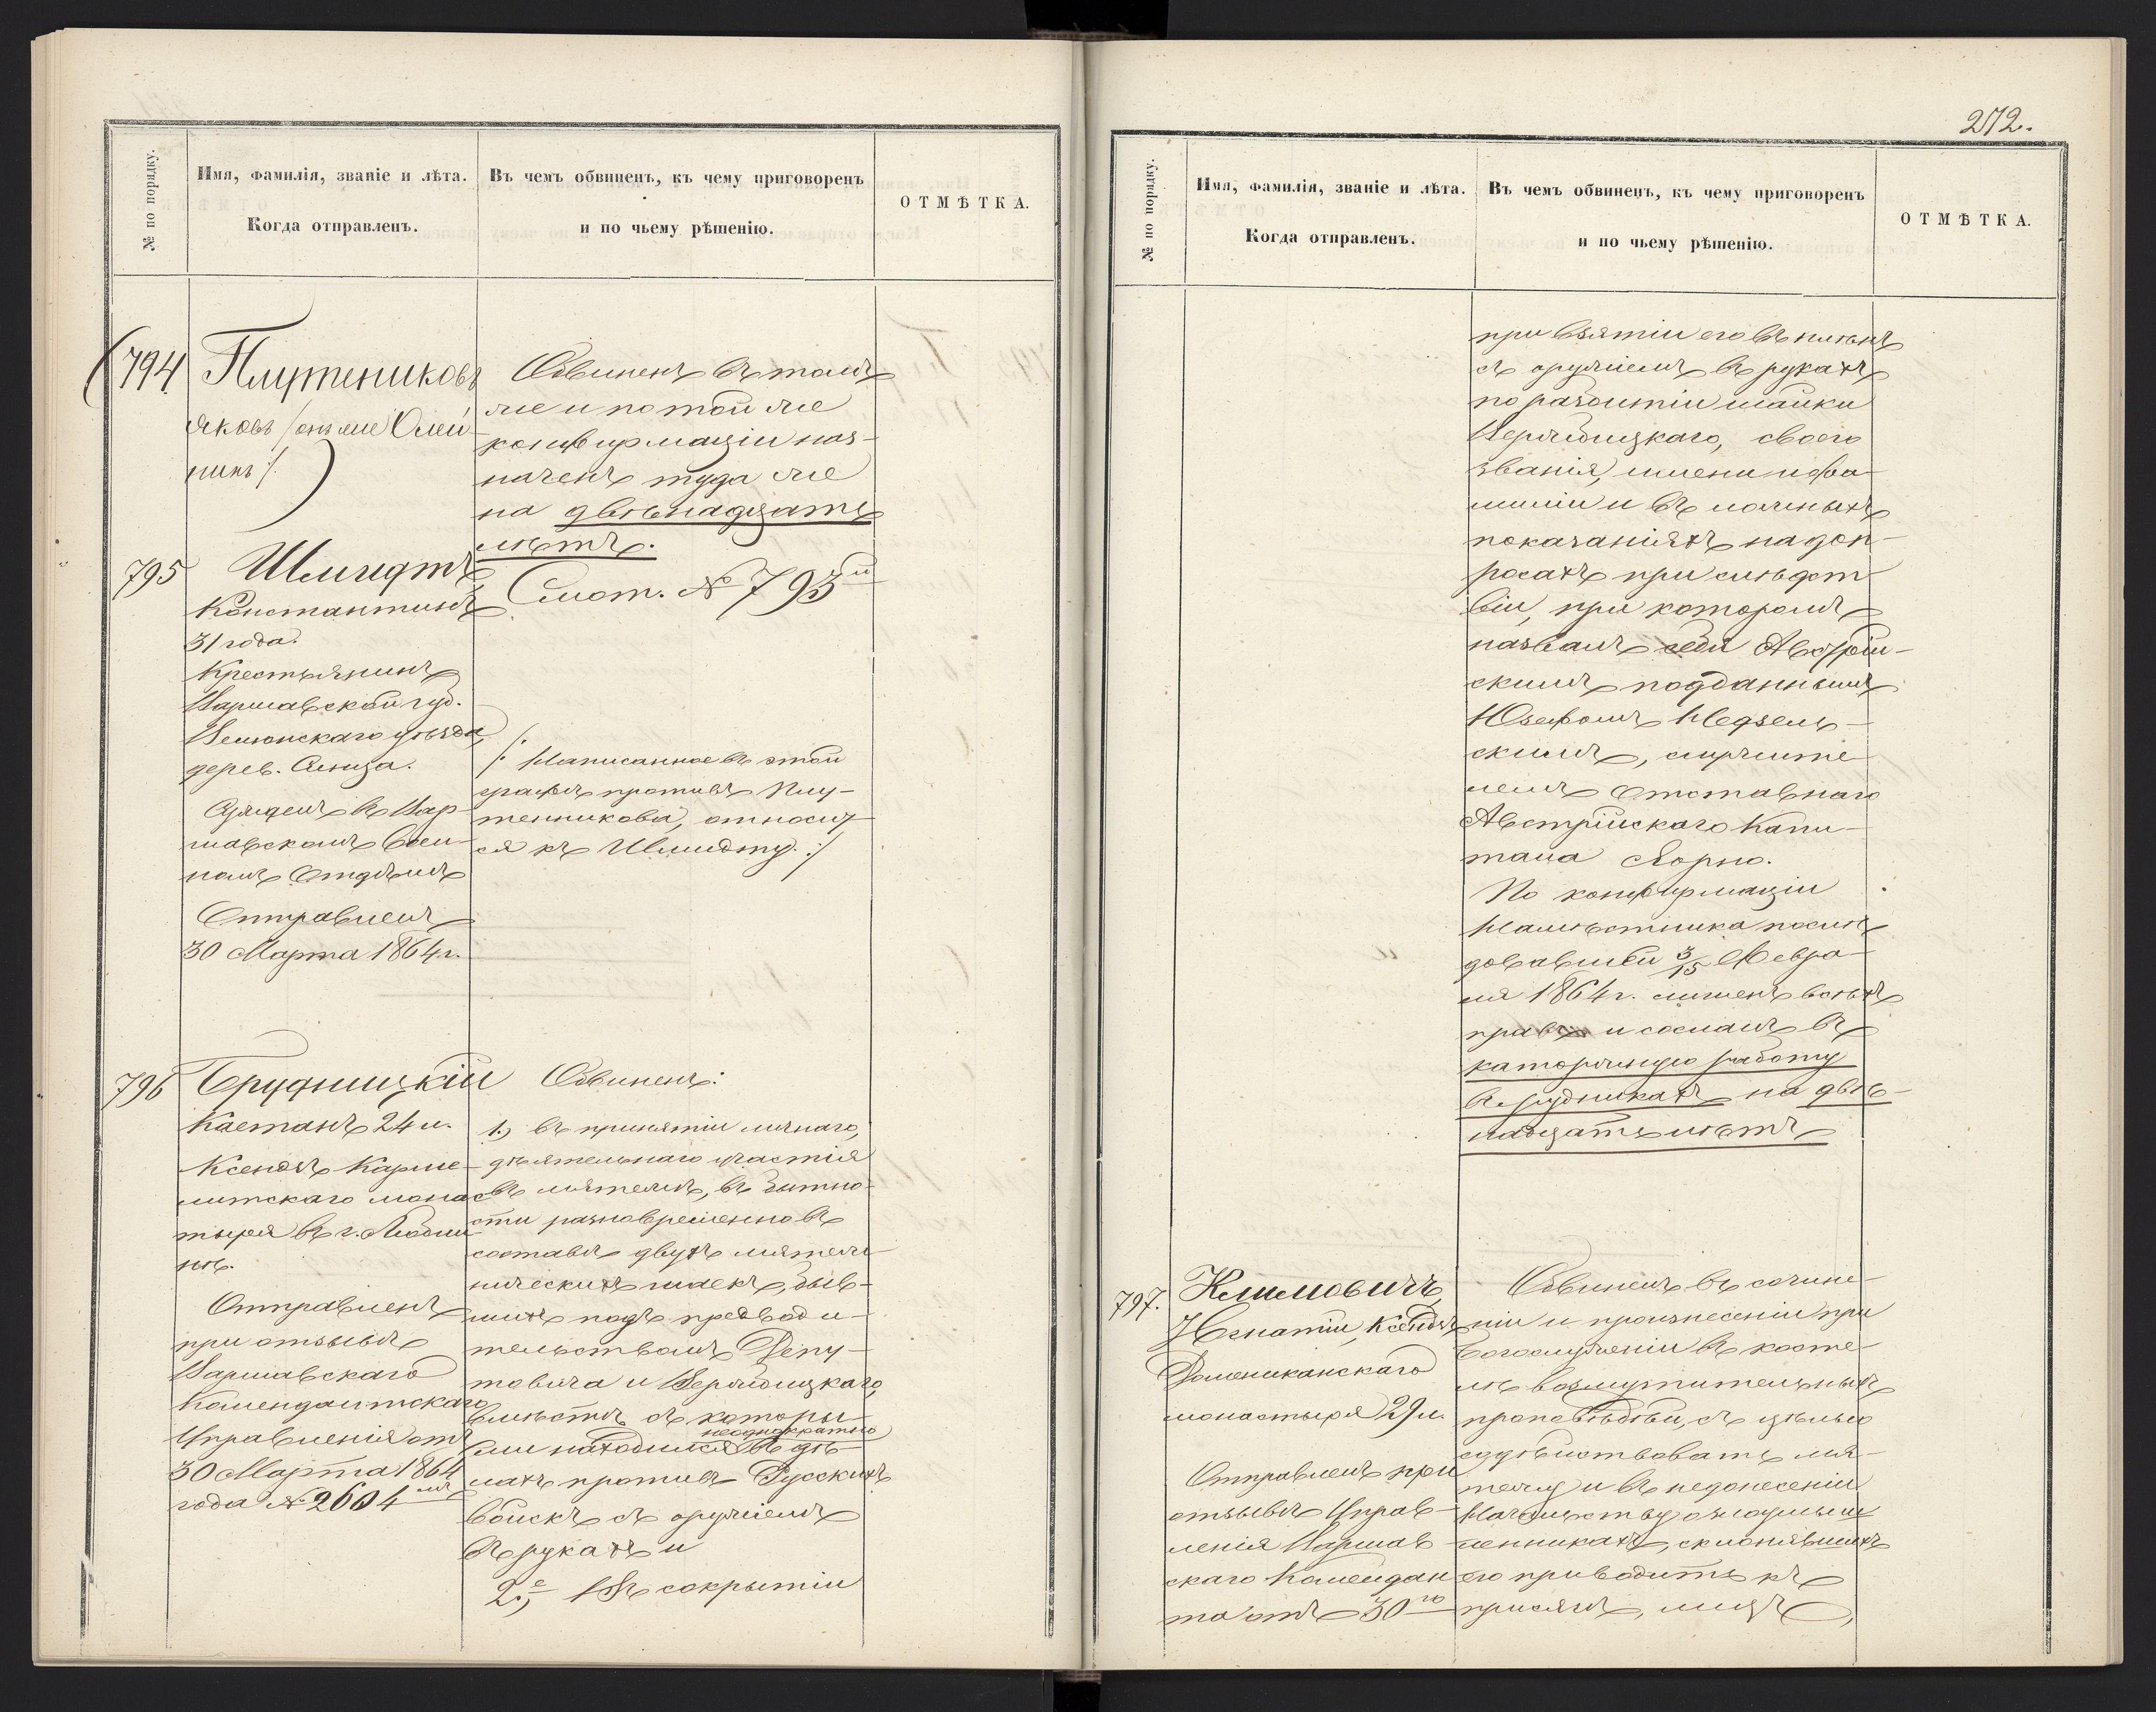 № по порядку.
Имя, фамилія, званіе и лѣта.
Когда отправленъ.
Въ чемъ обвиненъ, къ чему приговоренъ
и по чьему рѣшенію.
ОТМѢТКА.
794
Плутениковъ
Яковъ /онъ же Олей-
никъ/.
Обвиненъ въ томъ
же и по той же
конфирмаціи наз-
наченъ туда же
на двѣнадцать
лѣтъ.
795
Шмидтъ
Константинъ
31 года.
Крестьянинъ
Варшавской губ.
Велюнскаго уѣзда,
дерев.
Сужденъ въ Вар-
шавскомъ Воен-
номъ Отдѣлѣ
Отправленъ
30 Марта 1864 г.
Смот. № 793й
/: Написанное въ этой
графѣ противъ Плу-
тенникова, относит-
ся къ Шмидту. :/
796
Брудницкій
Каетанъ 24 л.
Ксендзъ Карме-
литскаго монас-
тыря въ г. Люблин-
нѣ.
Отправленъ
при отзывѣ
Варшавскаго
Комендантскаго
Управленія отъ
30 Марта 1864
года № 2604мъ
Обвиненъ:
1.) въ принятіи личнаго,
дѣятельнаго участія
въ мятежѣ, въ бытно-
сти разновременно въ
составѣ двухъ мятеж-
ническихъ шаекъ, быв-
шихъ подъ предводи-
тельствомъ Вепу-
товича и Вержбицкаго,
вмѣстѣ съ которы-
неоднократно
ми находился въ дѣ-
лахъ противъ Русскихъ
войскъ съ оружіемъ
въ рукахъ и
2.е) Въ сокрытіи
272.
№ по порядку.
Имя, фамилія, званіе и лѣта.
Когда отправленъ.
Въ чемъ обвиненъ, къ чему приговоренъ
и по чьему рѣшенію.
ОТМѢТКА.
при взятіи его въ плѣнъ
съ оружіемъ въ рукахъ
по разбитіи шайки
Вержбицкаго, своего
званія, имени и фа-
миліи и въ ложныхъ
показаніяхъ на доп-
росахъ при слѣдст-
віи, при которомъ
назвалъ себя Австрій-
скимъ подданнымъ
Юзефомъ Недзель-
скимъ, служите-
лемъ отставнаго
Австрійскаго Капи-
тана Ворно.
По конфирмаціи
Намѣстника послѣ-
довавшей 3/15 Февра-
ля 1864 г. лишенъ всѣхъ
правъ и сосланъ въ
каторжную работу
въ рудникахъ на двѣ-
надцать лѣтъ
797.
Климовичъ
Игнатій, Ксендзъ
Доминиканскаго
монастыря 29 л.
Отправленъ при
отзывѣ Управ-
ленія Варшав-
скаго Комендан-
та отъ 30го
Обвиненъ въ сочине-
ніи и произнесеніи при
Богослуженіи въ косте-
лѣ возмутительныхъ
проповѣдей, съ цѣлью
содѣйствовать мя-
тежу и въ недонесеніи
Начальству о злоумыш-
ленникахъ, склонявшихъ
его приводить къ
присягѣ, лицъ,